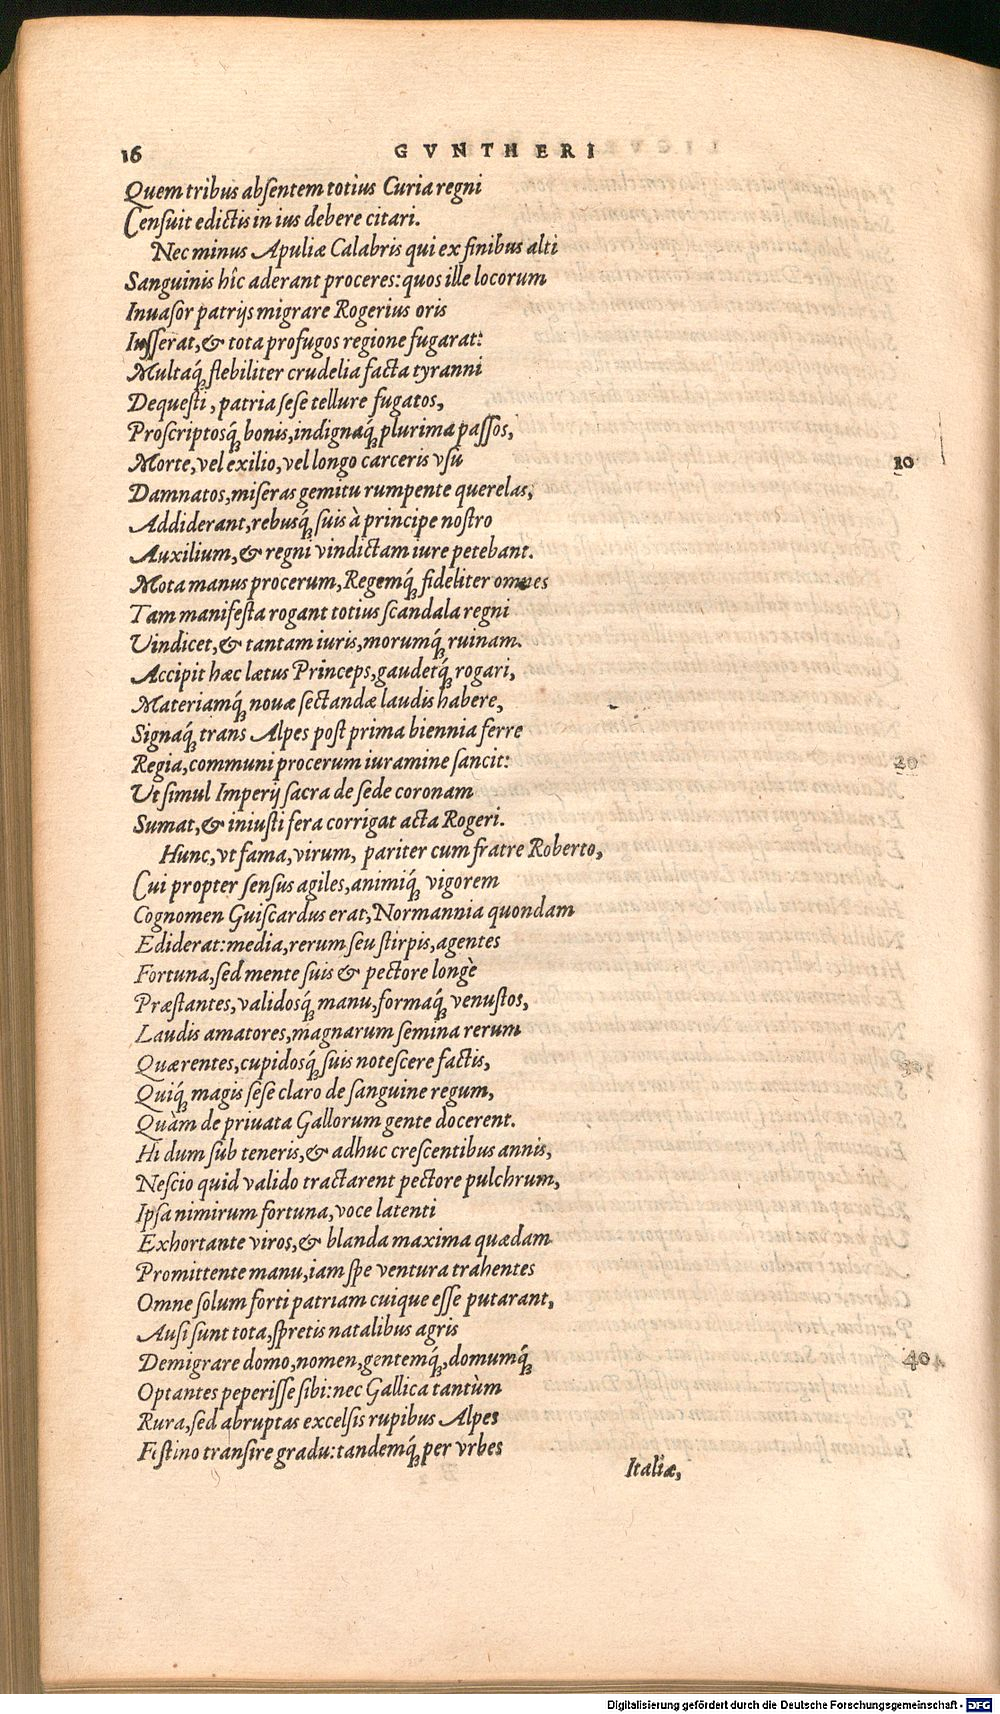 16 GVNTHERI
Quem tribus absentem totius Curia regni
Censuit edictis in ius debere citari.
Nec minus Apuliæ Calabris qui ex finibus alti
Sanguinis hîc aderant proceres: quos ille locorum
Inuasor patrijs migrare Rogerius oris
Iusserat, & tota profugos regione fugarat:
Multaq́; flebiliter crudelia facta tyranni
Dequesti, patria sese tellure fugatos,
Proscriptosq́; bonis, indignaq́; plurima passos,
Morte, vel exilio, vel longo carceris vsu 10
Damnatos, miseras gemitu rumpente querelas,
Addiderant, rebusq́; suis à principe nostro
Auxilium, & regni vindictam iure petebant.
Mota manus procerum, Regemq́; fideliter omnes
Tam manifesta rogant totius scandala regni
Vindicet, & tantam iuris, morumq́; ruinam.
Accipit hæc lætus Princeps, gaudetq́; rogari,
Materiamq́; nouæ sectandæ laudis habere,
Signaq́; trans Alpes post prima biennia ferre
Regia, communi procerum iuramine sancit: 20
Vt simul Imperij sacra de sede coronam
Sumat, & iniusti fera corrigat acta Rogeri.
Hunc, vt fama, virum, pariter cum fratre Roberto,
Cui propter sensus agiles, animiq́; vigorem
Cognomen Guiscardus erat, Normannia quondam
Ediderat: media, rerum seu stirpis, agentes
Fortuna, sed mente suis & pectore longè
Præstantes, validosq́; manu, formaq́; venustos,
Laudis amatores, magnarum semina rerum
Quærentes, cupidosq́; suis notescere factis, 30
Quiq́; magis sese claro de sanguine regum,
Quàm de priuata Gallorum gente docerent.
Hi dum sub teneris, & adhuc crescentibus annis,
Nescio quid valido tractarent pectore pulchrum,
Ipsa nimirum fortuna, voce latenti
Exhortante viros, & blanda maxima quædam
Promittente manu, iam spe ventura trahentes
Omne solum forti patriam cuique esse putarant,
Ausi sunt tota, spretis natalibus agris
Demigrare domo, nomen, gentemq́;, domumq́; 40
Optantes peperisse sibi: nec Gallica tantùm
Rura, sed abruptas excelsis rupibus Alpes
Festino transire gradu: tandemq́; per vrbes
Italiæ,
Digitalisierung gefördert durch die Deutsche Forschungsgemeinschaft - DFG